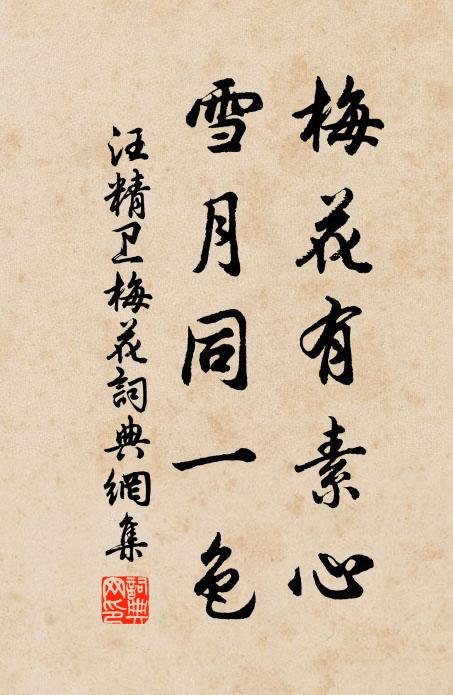 梅花有素心
雪月同一色
汪精卫梅花詞典網集
詞典网印